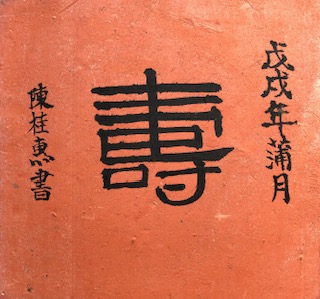 戊戌年蒲月
壽
陳桂惠書